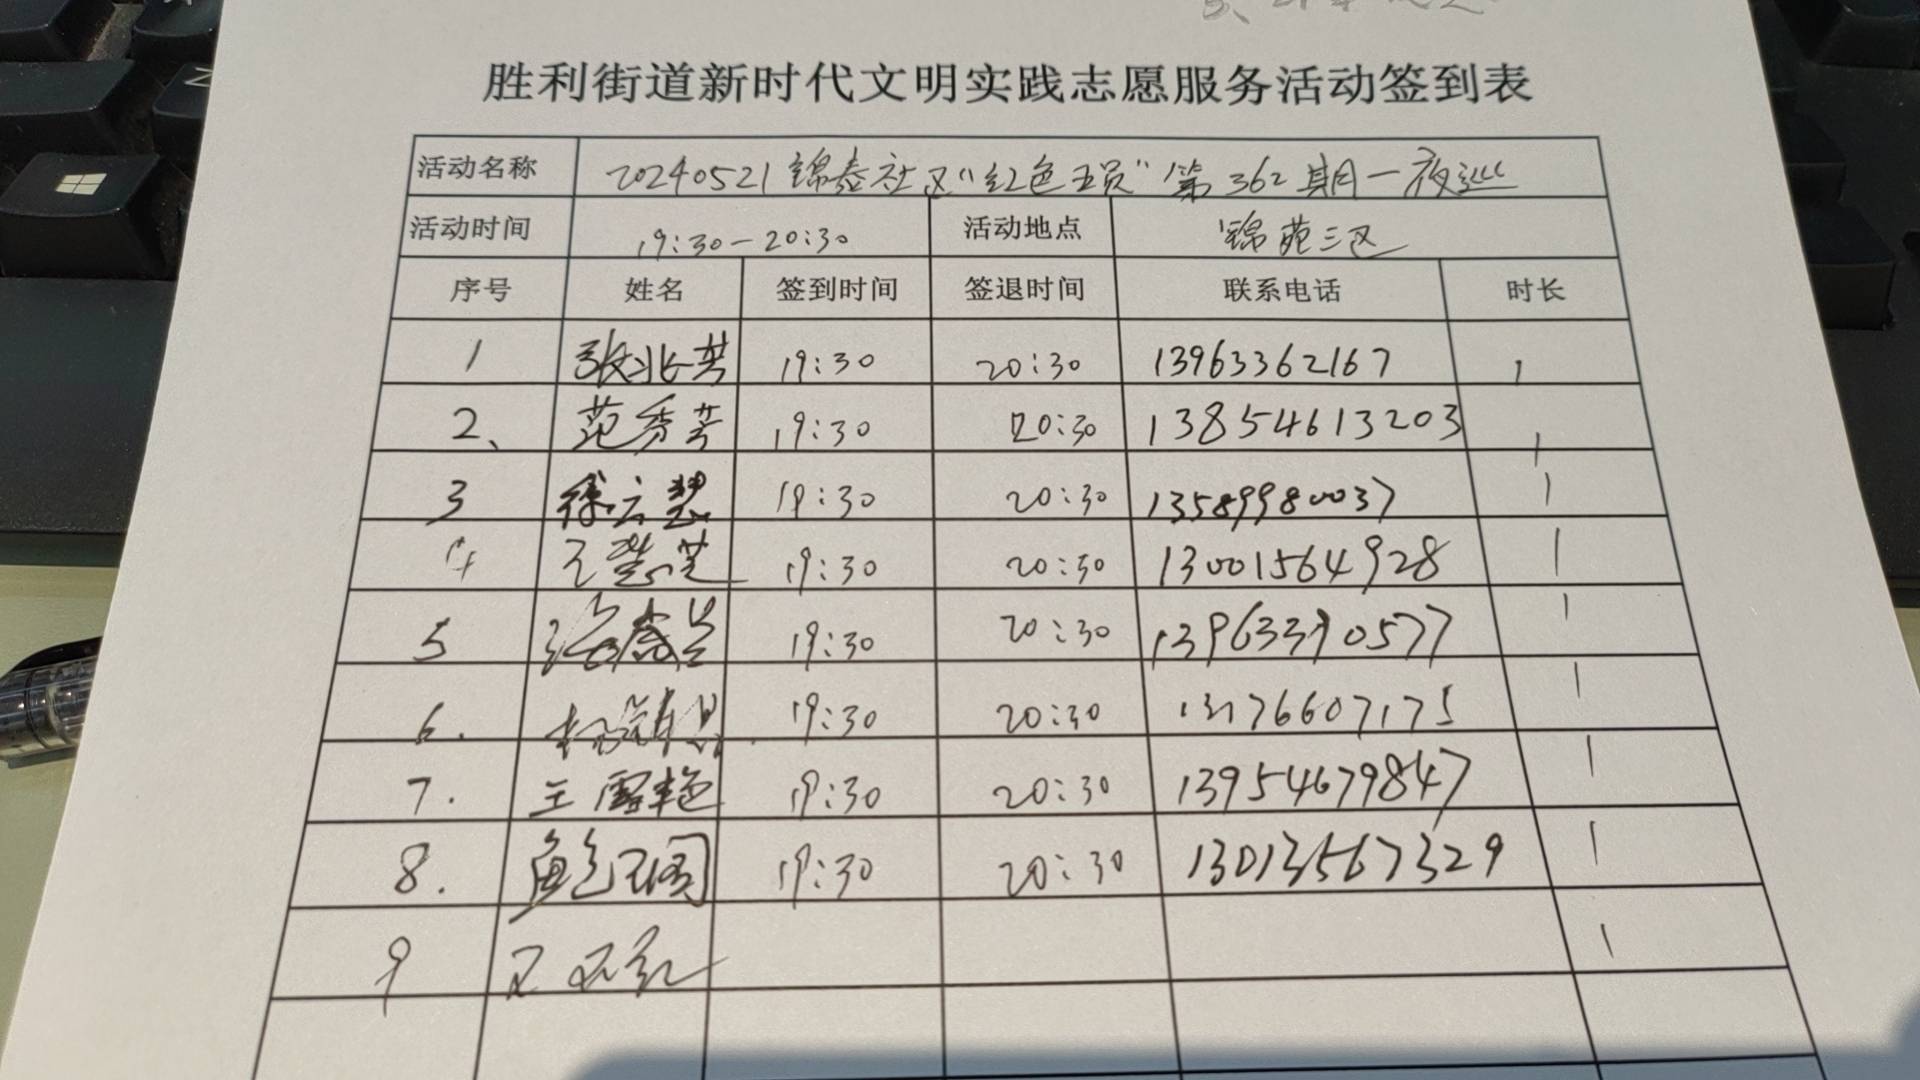 胜利街道新时代文明实践志愿服务活动签到表
活动名称 20240521锦泰社区“红色主员”第362期一夜巡
活动时间 19:30-20:30 活动地点 锦苑三区
序号 姓名 签到时间 签退时间 联系电话 时长
1 张兆芳 19:30 20:30 13963362167 1
2、 范秀芳 19:30 20:30 13854613203 1
3 徐云慧 19:30 20:30 13589980037 1
4 王慧芝 19:30 20:30 13001564928 1
5 19:30 20:30 13963390577 1
6. 19:30 20:30 13176607175 1
7. 王雪艳 19:30 20:30 13954679847 1
8. 鲍玉阁 19:30 20:30 13013567329 1
9 1